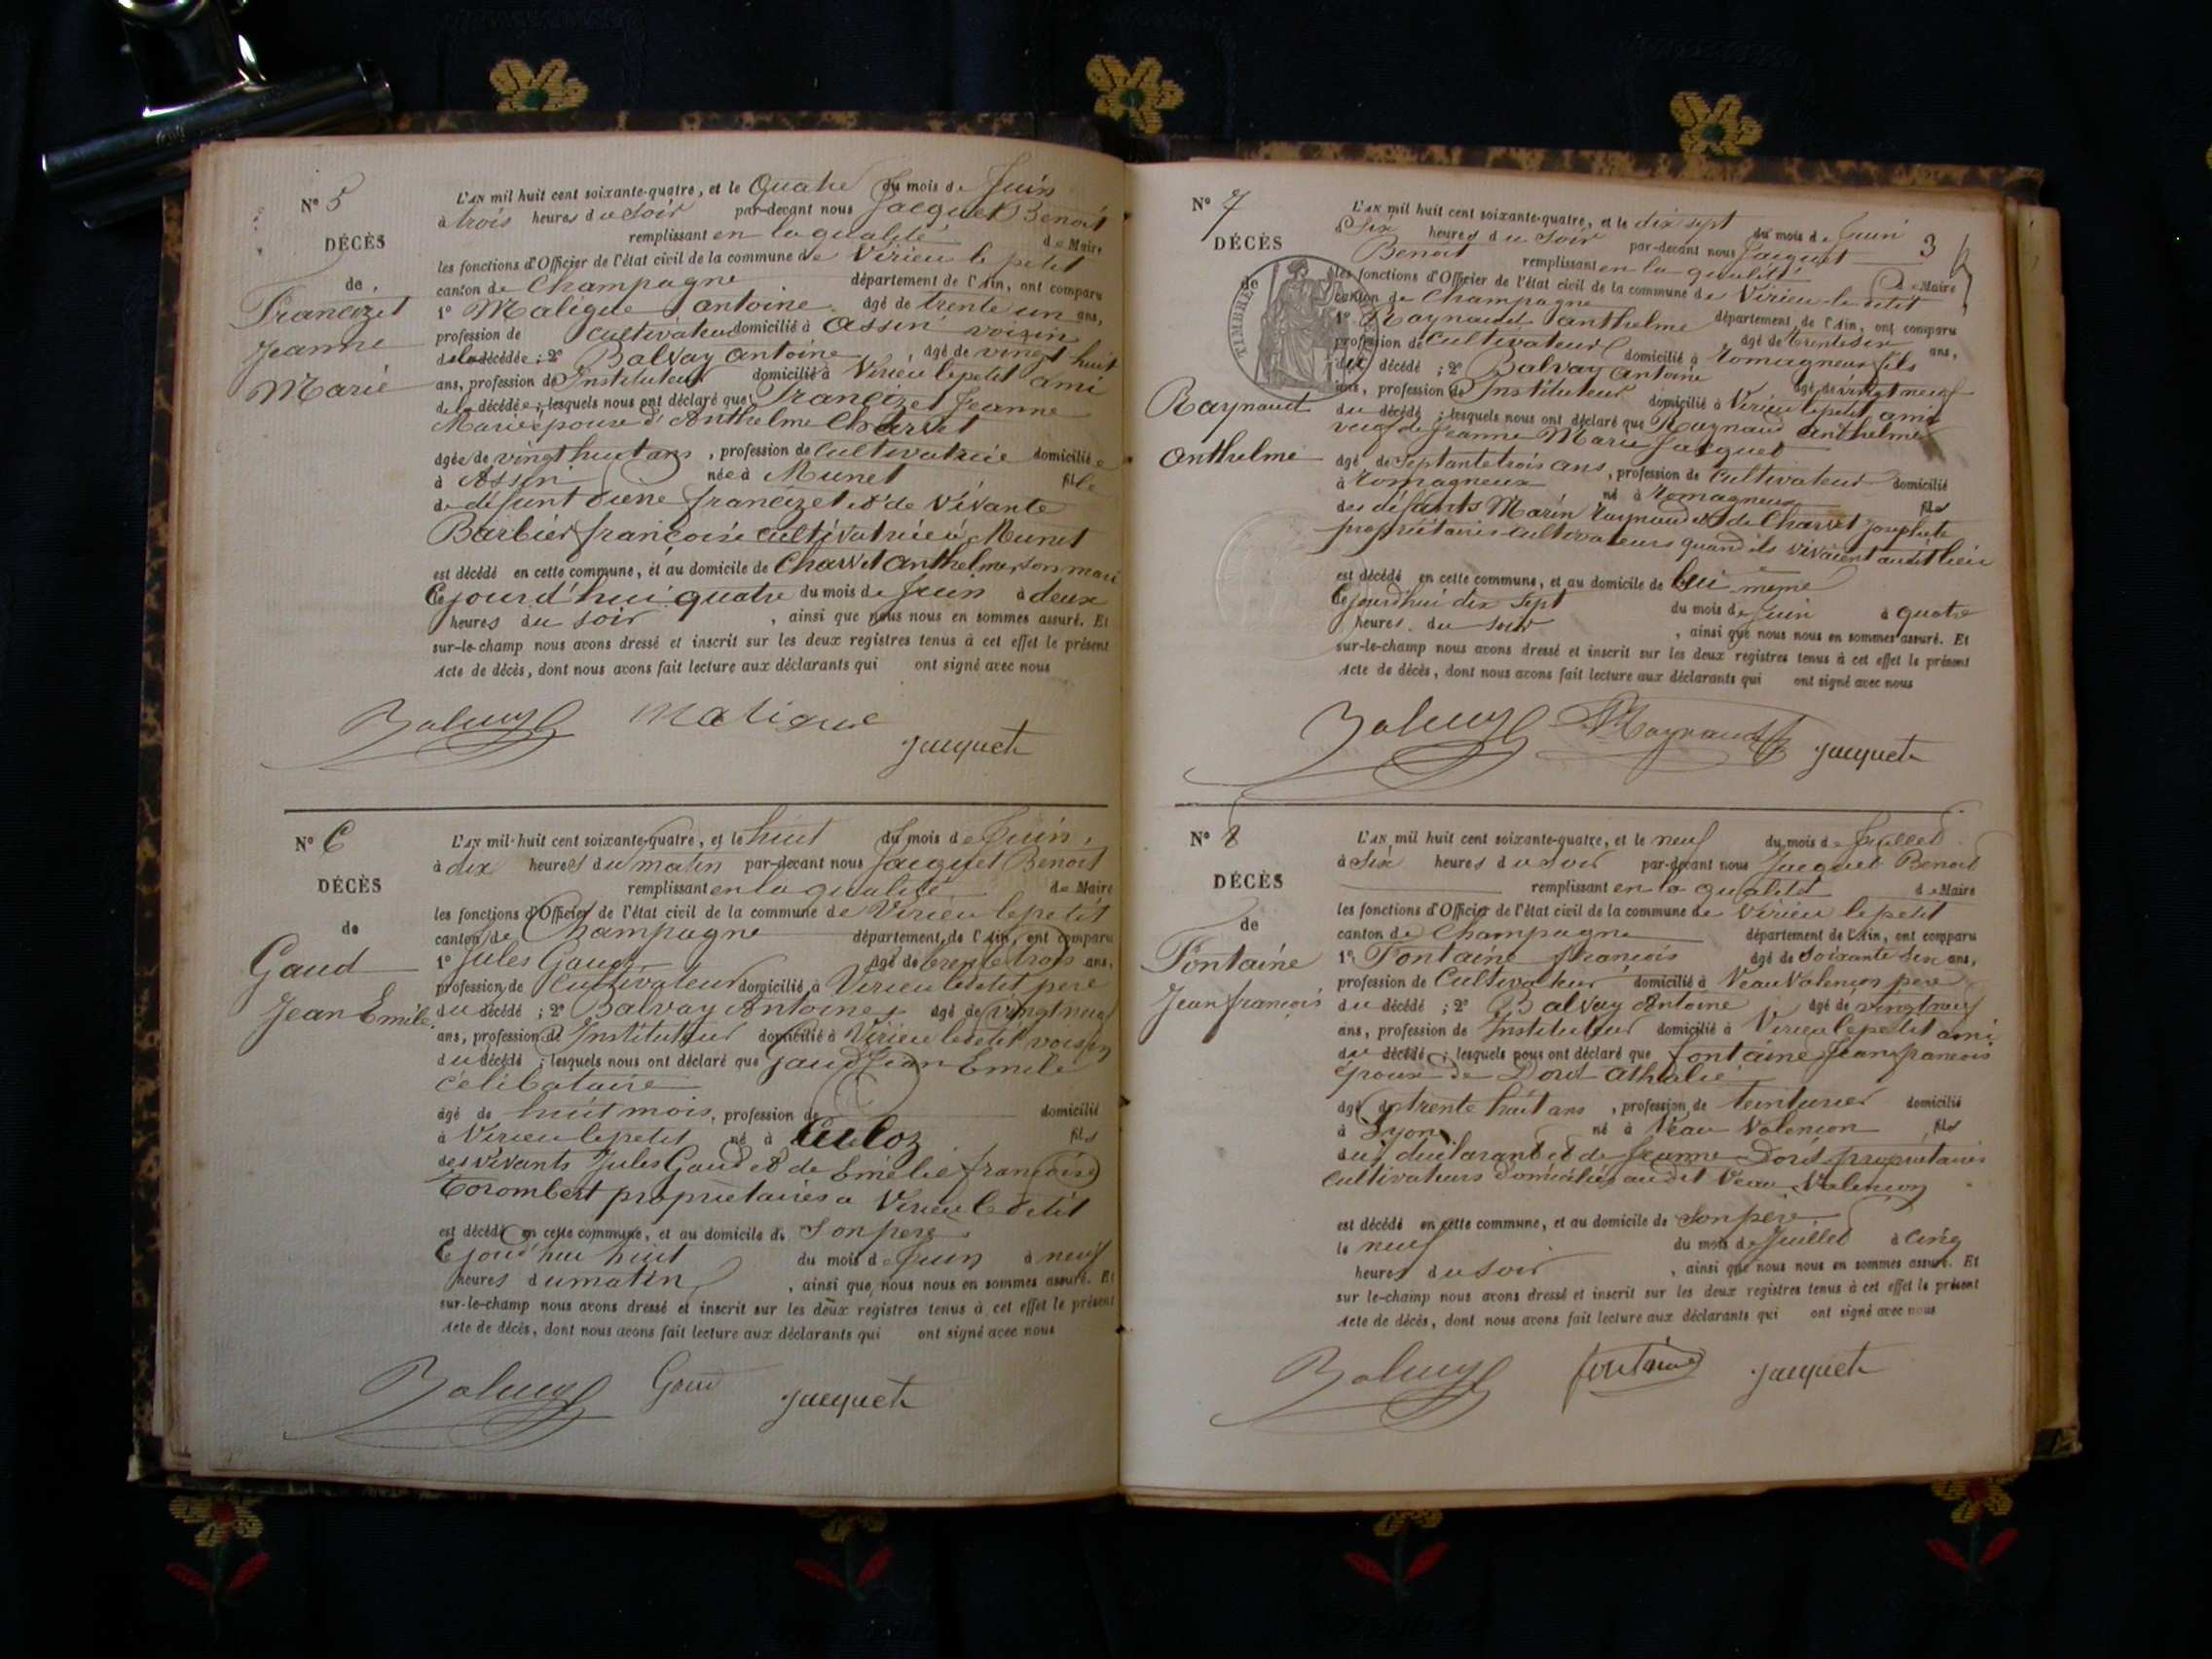 N° 5
DÉCÈS
de
Francizet
Jeanne
Marie
L'AN mil huit cent soixante-quatre, et le Quatre du mois de Juin
à trois heures du Soir par-devant nous Jacquet Benoit
remplissant en la qualité de Maire
les fonctions d'Officier de l'état civil de la commune de Virieu le petit
canton de Champagne département de l'Ain, ont comparu
1° Maligue antoine âgé de trente un ans,
profession de Cultivateur domicilié à Assin voisin
de la décédée ; 2° Balvay antoine, âgé de vingt huit
ans, profession de Instituteur domicilié à Virieu lepetit ami
de la décédée ; lesquels nous ont déclaré que Francizet Jeanne
Marie épouse d'Anthelme Charvet
âgée de vingt huit ans, profession de Cultivatrice domiciliée
à Assin née à Munet fille
de défunt francizet et de Vivante
Barbier françoise cultivatrice à Munet
est décédé en cette commune, et au domicile de Charvet Anthelme son mari
Cejourd'hui quatre du mois de Juin à deux
heures du soir, ainsi que nous nous en sommes assuré. Et
sur-le-champ nous avons dressé et inscrit sur les deux registres tenus à cet effet le présent
Acte de décès, dont nous avons fait lecture aux déclarants qui ont signé avec nous
Balvay Maligue
Jacquet
N° 6
DÉCÈS
de
Gaud
Jean Emile
L'AN mil huit cent soixante-quatre, et le huit du mois de Juin,
à dix heures du matin par-devant nous Jacquet Benoit
remplissant en la qualité de Maire
les fonctions d'Officier de l'état civil de la commune de Virieu lepetit
canton de Champagne département de l'Ain, ont comparu
1° Jules Gaud âgé de trente trois ans,
profession de Cultivateur domicilié à Virieu lepetit pere
du décédé ; 2° Balvay Antoine, âgé de vingt neuf
ans, profession de Instituteur domicilié à Virieu lepetit voisin
du décédé ; lesquels nous ont déclaré que Gaud Jean Emile
célibataire
âgé de huit mois, profession de domicilié
à Virieu lepetit né à Culoz fils
des vivants Jules Gaud et de Emélie françoise
Torombert propriétaires a Virieu lepetit
est décédé en cette commune, et au domicile de Son pere
Cejourd'hui huit du mois de Juin à neuf
heures du matin, ainsi que nous nous en sommes assuré. Et
sur-le-champ nous avons dressé et inscrit sur les deux registres tenus à cet effet le présent
Acte de décès, dont nous avons fait lecture aux déclarants qui ont signé avec nous
Balvay Gaud Jacquet
N° 7
DÉCÈS
de
Raynaud
Anthelme
TIMBRE
3
L'AN mil huit cent soixante-quatre, et le dix sept du mois de Juin
à Six heures du Soir par-devant nous Jacquet
Benoit remplissant en la qualité de Maire
les fonctions d'Officier de l'état civil de la commune de Virieu le petit
canton de Champagne département de l'Ain, ont comparu
1° Raynaud anthelme âgé de trente six ans,
profession de Cultivateur domicilié à Romagneux fils
du décédé ; 2° Balvay Antoine âgé de vingt neuf
ans, profession de Instituteur domicilié à Virieu lepetit ami
du décédé ; lesquels nous ont déclaré que Raynaud Anthelme
veuf de Jeanne Marie Jacquet
âgé de Septante trois ans, profession de Cultivateur domicilié
à Romagneux né à Romagneux fils
des défunts Marin Raynaud et de Charvet Josephete
propriétaires cultivateurs quand ils vivaient audit lieu
est décédé en cette commune, et au domicile de lui même
Cejourd'hui dix Sept du mois de Juin à quatre
heures du Soir, ainsi que nous nous en sommes assuré. Et
sur-le-champ nous avons dressé et inscrit sur les deux registres tenus à cet effet le présent
Acte de décès, dont nous avons fait lecture aux déclarants qui ont signé avec nous
Balvay Raynaud Jacquet
N° 8
DÉCÈS
de
Fontaine
Jean françois
L'AN mil huit cent soixante-quatre, et le neuf du mois de Juillet
à Six heures du Soir par-devant nous Jacquet Benoit
remplissant en la qualité de Maire
les fonctions d'Officier de l'état civil de la commune de Virieu lepetit
canton de Champagne département de l'Ain, ont comparu
1° Fontaine françois âgé de Soixante Six ans,
profession de Cultivateur domicilié à Veau Valencon pere
du décédé ; 2° Balvay Antoine, âgé de vingt neuf
ans, profession de Instituteur domicilié à Virieu lepetit ami
du décédé ; lesquels nous ont déclaré que fontaine Jean francois
époux de Doret Athalie
âgé de trente huit ans, profession de teinturier domicilié
à Lyon né à Veau Valencon fils
du déclarant et de Jeanne Doret propriétaires
Cultivateurs domiciliés audit Veau Valencon
est décédé en cette commune, et au domicile de Son pere
le neuf du mois de Juillet à cinq
heures du Soir, ainsi que nous nous en sommes assuré. Et
sur le-champ nous avons dressé et inscrit sur les deux registres tenus à cet effet le présent
Acte de décès, dont nous avons fait lecture aux déclarants qui ont signé avec nous
Balvay fontaine Jacquet